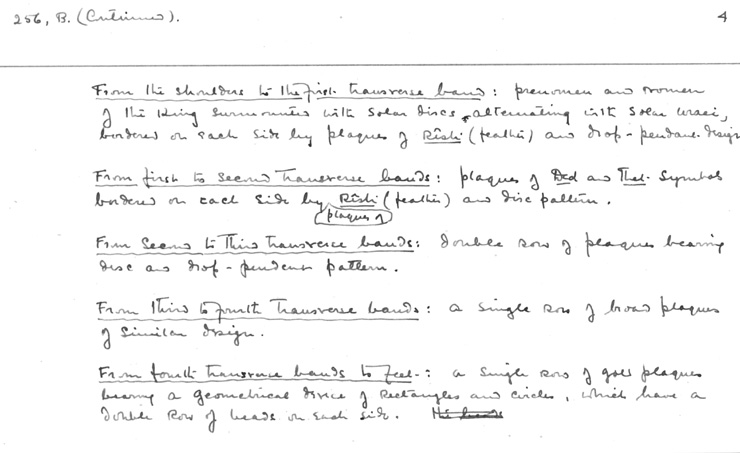 256, B. (Continued).
4
From the shoulders to the first transverse band: prenomen and nomen
of the King surmounted with solar discs, alternating with solar uraei,
bordered on each side by plaques of Rishi (feather) and drop-pendant design
From first to second transverse bands: plaques of Ded and Thet symbols
bordered on each side by Rishi (feather) and disc pattern.
plaques of
From second to third transverse bands: double row of plaques bearing
disc and drop-pendent pattern.
From third to fourth transverse bands: a single row of broad plaques
of similar design.
From fourth transverse bands to feet: a single row of gold plaques
bearing a geometrical device of rectangles and circles, which have a
double row of beads on each side.